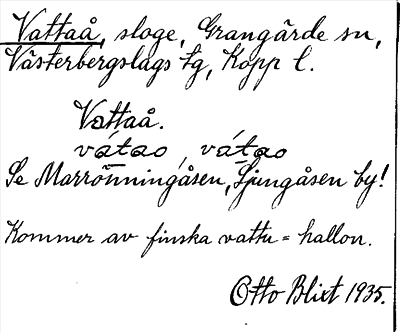 Vattaå, sloge, Grangärde sn,
Västerbergslags tg, Kopp l.
Vattaå.
vátao, vátao
Se Marrönningåsen, Ljungåsen by!
Kommer av finska vattu = hallon.
Otto Blixt 1935.